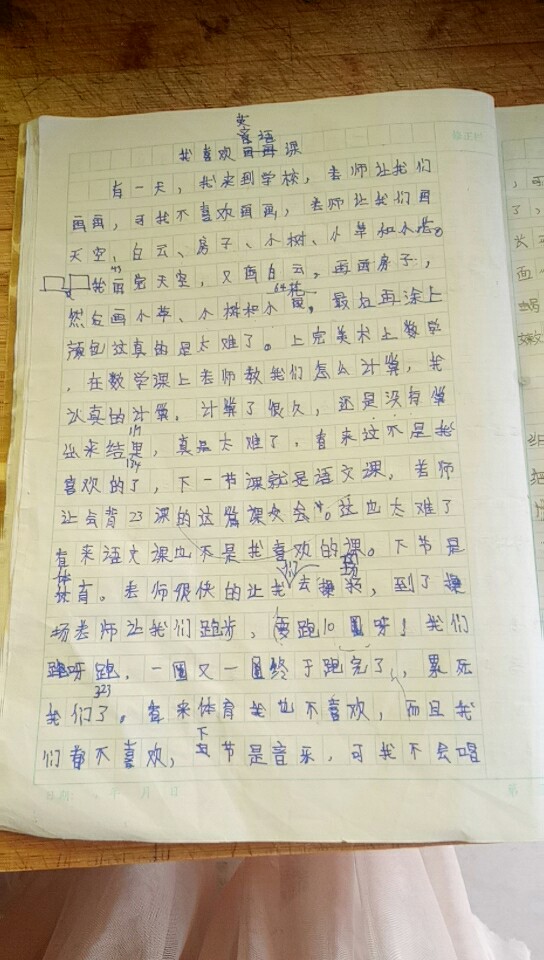 英语
我喜欢画画课
有一天，我来到学校，老师让我们
画画，可我不喜欢画画，老师让我们画
天空、白云、房子、小树、小草和小花。
我画完天空，又画白云，再画房子，
然后画小草、小树和小花，最后再涂上
颜色这真的是太难了。上完美术上数学
，在数学课上老师教我们怎么计算，我
认真的计算。计算了很久，还是没有算
出来结果，真是太难了，看来这不是我
喜欢的了，下一节课就是语文课，老师
让我背23课的这篇课文会。这也太难了
看来语文课也不是我喜欢的课。下节是
体育。老师很快的让我们去操场，到了操
场老师让我们跑步，要跑10圈呀！我们
跑呀跑，一圈又一圈终于跑完了，累死
我们了。看来体育我也不喜欢，而且我
们都不喜欢，下节是音乐，可我不会唱
日期： 年 月 日
第